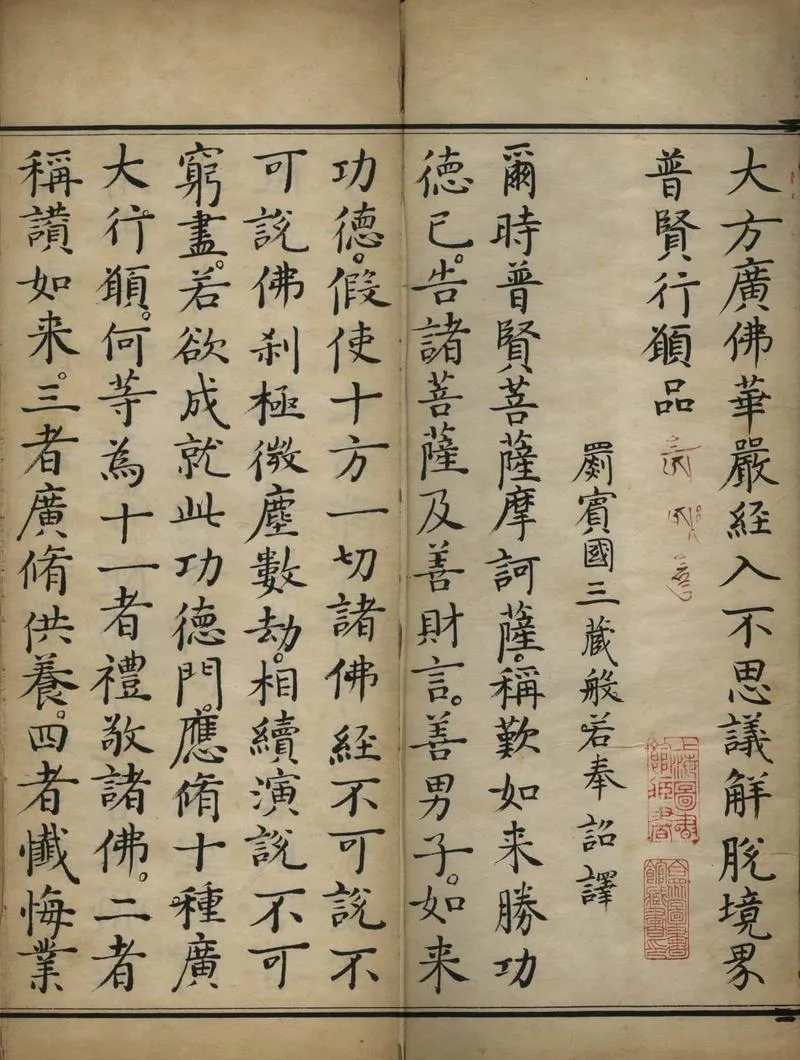 大方廣佛華嚴経入不思議解脫境界
普賢行願品
罽賓國三蔵般若奉詔譯
爾時普賢菩薩摩訶薩。稱歎如来勝功
德已。告諸菩薩及善財言。善男子。如来
功德。假使十方一切諸佛経不可說不
可說佛刹極微塵數劫。相續演說不可
窮盡。若欲成就此功德門。應脩十種廣
大行願。何等為十一者禮敬諸佛。二者
稱讃如来。三者廣脩供養。四者懺悔業